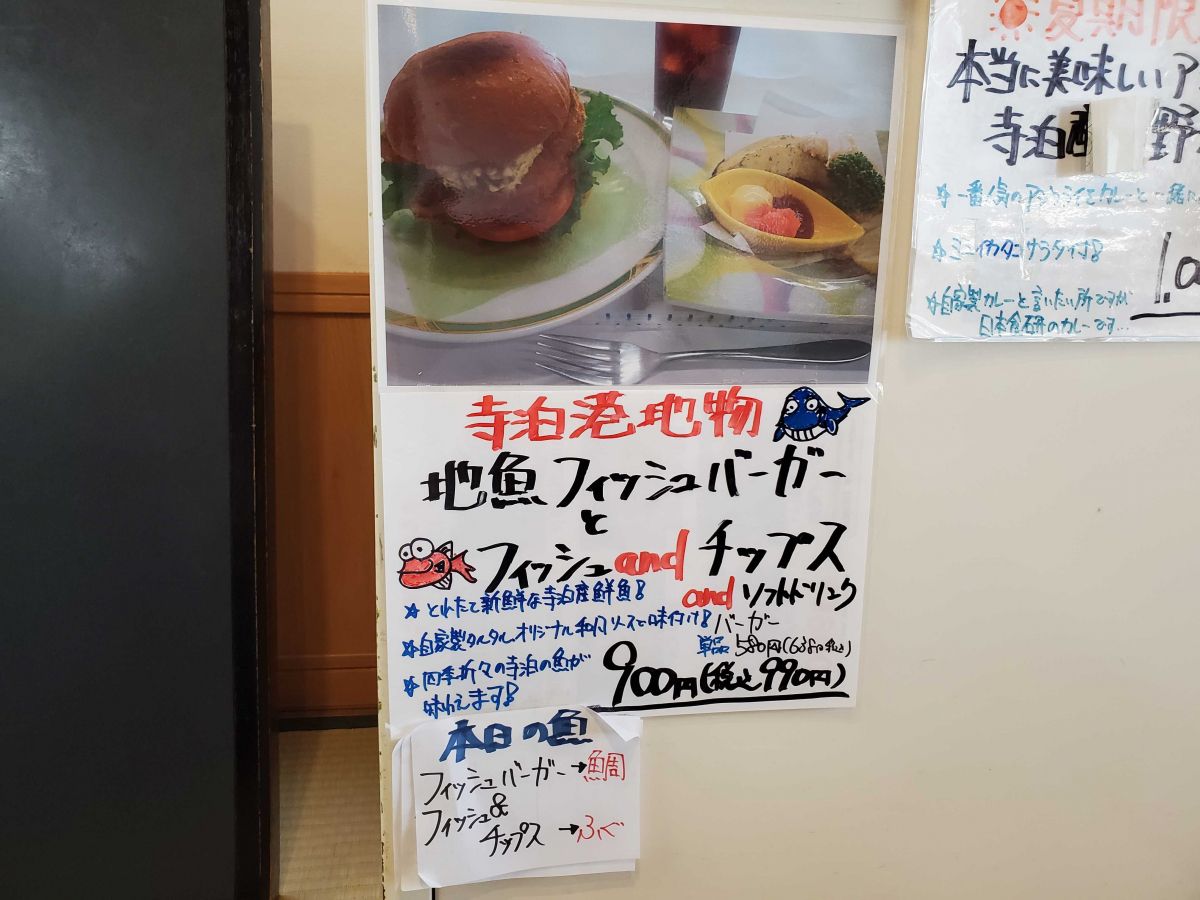 寺泊港地物
地魚フィッシュバーガー
と
フィッシュandチップス
andソフトドリンク
☆とれたて新鮮な寺泊産鮮魚!
☆自家製タルタル、オリジナル和風ソースで味付け!
☆四季折々の寺泊の魚が
味わえます!
バーガー
単品 580円(638円税込)
900円(税込990円)
本日の魚
フィッシュバーガー→鯛
フィッシュ&
チップス→ふぐ
夏期限
本当に美味しいア
寺泊産 野
☆一番人気のアラカルトをカレーと一緒に
☆ミニイカタコサラダ付!
☆自家製カレーと言いたい所ですが
日本食研のカレーです...